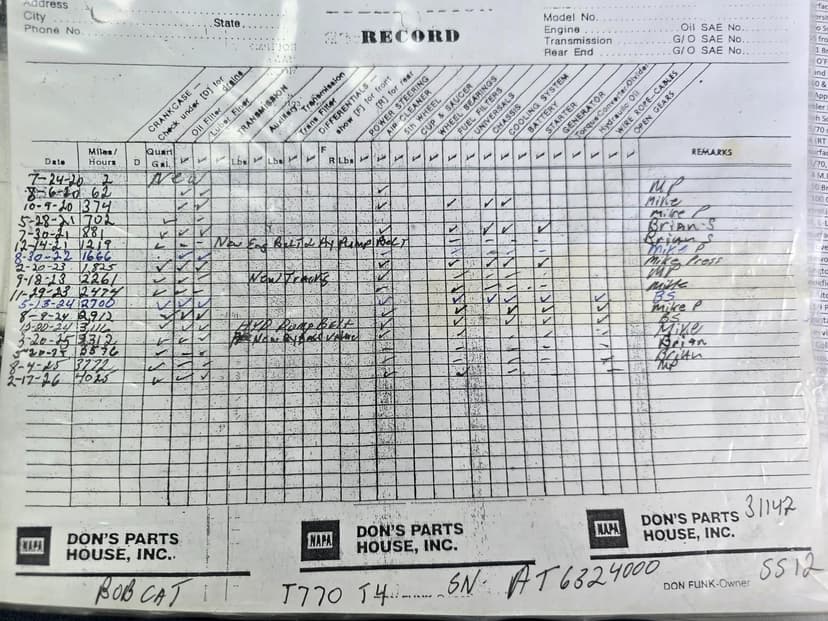 Address
City State Model No.
Phone No. RECORD Engine Oil SAE No.
Transmission G/O SAE No.
Rear End G/O SAE No.
CRANKCASE —
Check under [D] for drains
Oil Filter
Luber Filter
TRANSMISSION
Auxiliary Transmission
Trans. Filter
DIFFERENTIALS —
show [F] for front
[R] for rear
POWER STEERING
AIR CLEANER
5th WHEEL
CUP & SAUCER
WHEEL BEARINGS
FUEL FILTERS
UNIVERSALS
CHASSIS
COOLING SYSTEM
BATTERY
STARTER
GENERATOR
Torque Converter/Divider
Hydraulic Oil
WIRE ROPE-CABLES
OPEN GEARS
Date Miles/Hours D Quart Gal. ✓ ✓ Lbs ✓ Lbs ✓ ✓ F R Lbs ✓ ✓ ✓ ✓ ✓ ✓ ✓ ✓ ✓ ✓ ✓ ✓ ✓ ✓ ✓ REMARKS
7-24-20 2 New
8-6-20 62 MP
10-9-20 374 Mike
5-28-21 702 Mike P
7-30-21 881 Brian S
12-14-21 1219 New Eng Belt & Hy Pump Belt Brian S
8-30-22 1666 Mike P
2-20-23 1825 Mike Press
9-18-23 2261 New Tracks MP
11-29-23 2474 Mike
5-13-24 2700 BS
8-9-24 2912 Mike P
12-20-24 3116 HYD Pump Belt BS
3-20-25 3312 New Bypass Valve Mike
5-20-25 3596 Brian
8-4-25 3772 Brian
2-17-26 4025 MP
NAPA DON'S PARTS HOUSE, INC.
NAPA DON'S PARTS HOUSE, INC.
NAPA DON'S PARTS HOUSE, INC. 31142
BOBCAT T770 T4 SN- AT6324000 DON FUNK-Owner SS12